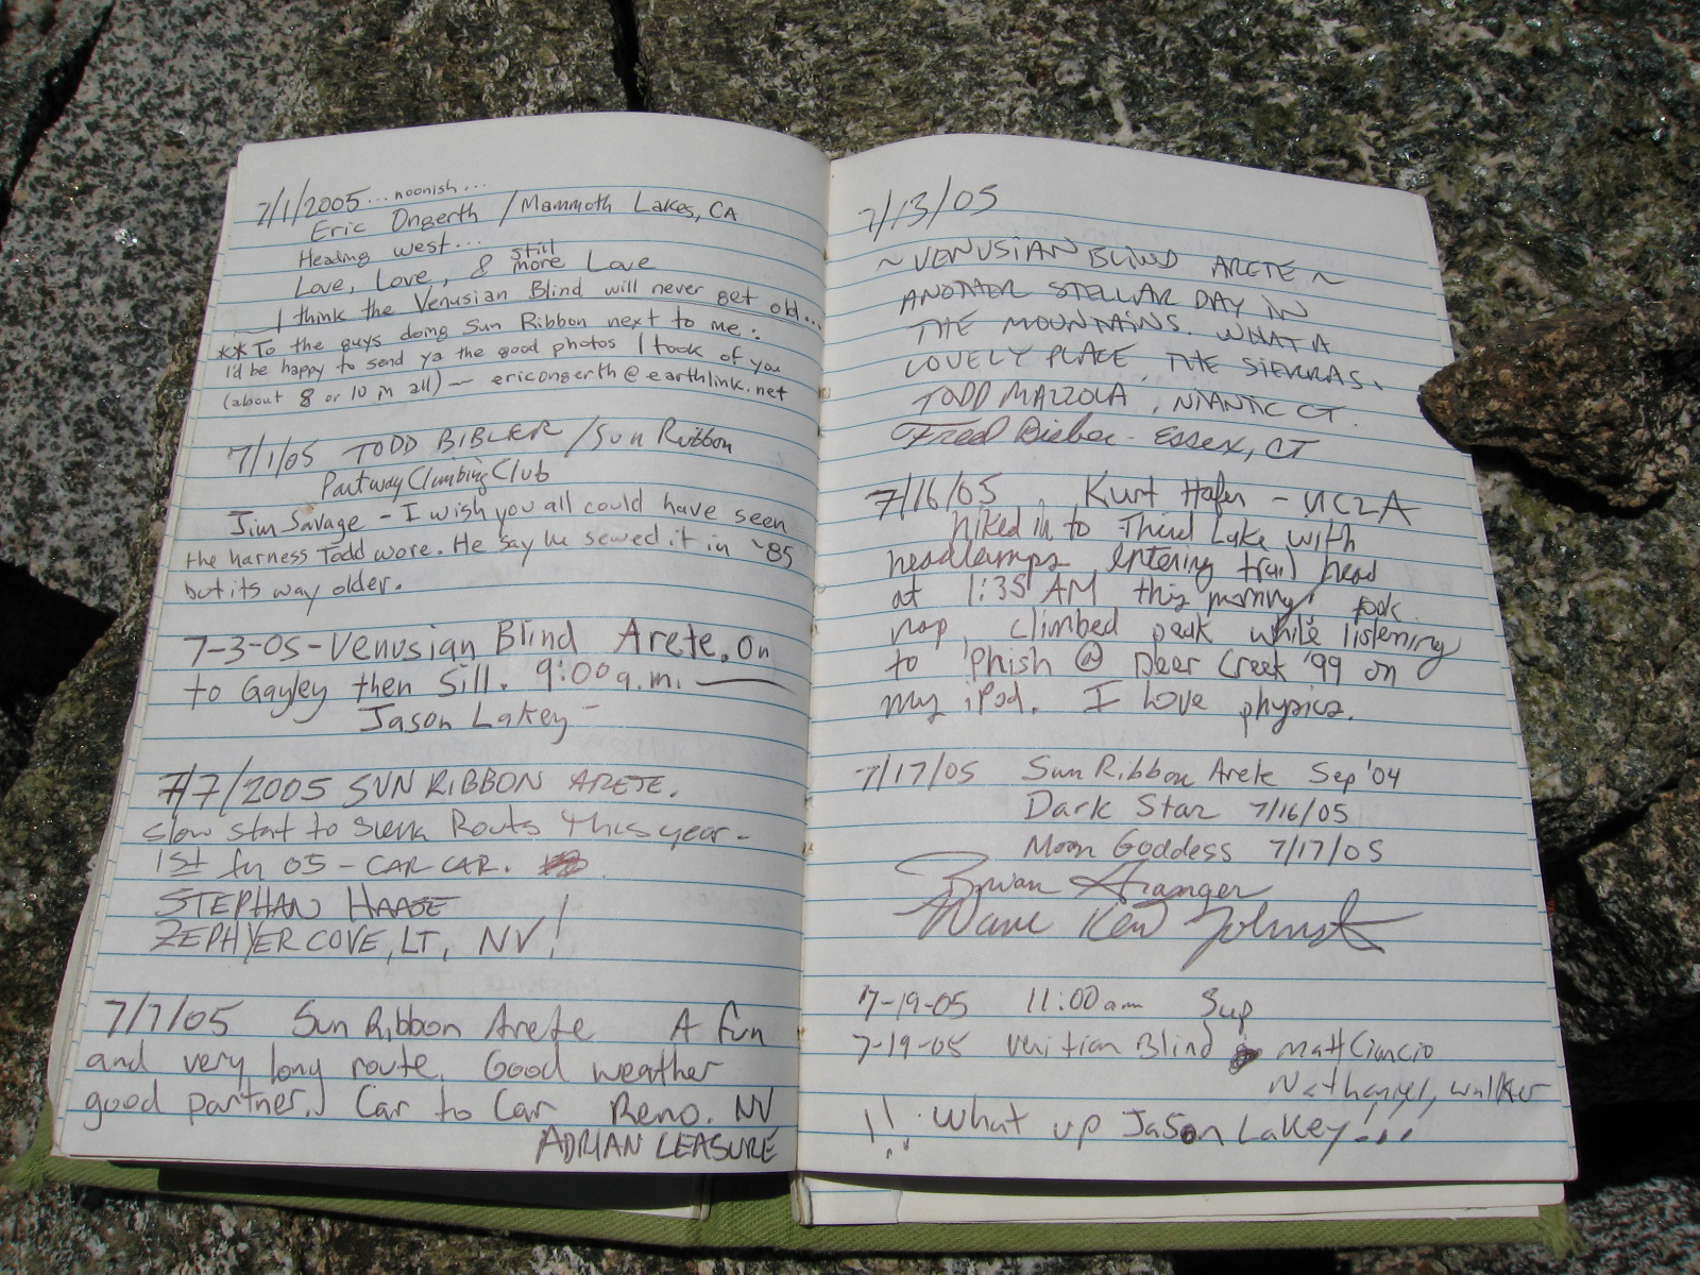 7/1/2005...noonish...
Eric Ongerth / Mammoth Lakes, CA
Heading west...
Love, Love, & still more Love
I think the Venusian Blind will never get old...
**To the guys doing Sun Ribbon next to me:
I'd be happy to send ya the good photos I took of you
(about 8 or 10 in all) — ericongerth@earthlink.net
7/1/05 TODD BIBLER / Sun Ribbon
Partway Climbing Club
Jim Savage - I wish you all could have seen
the harness Todd wore. He say he sewed it in ~85
but its way older.
7-3-05-Venusian Blind Arete. On
to Gayley then Sill. 9:00 a.m. —
Jason Lakey -
7/7/2005 SUN RIBBON ARETE.
Slow start to Sierra Routs this year -
1st fr 05 - CAR CAR.
STEPHAN HAASE
ZEPHYER COVE, LT, NV!
7/7/05 Sun Ribbon Arete A fun
and very long route. Good weather
good partner. Car to Car Reno. NV
ADRIAN LEASURE
7/13/05
~ VENUSIAN BLIND ARETE ~
ANOTHER STELLAR DAY IN
THE MOUNTAINS. WHAT A
LOVELY PLACE, THE SIERRAS.
TODD MAZZOLA, NIANTIC CT.
Fred Bieber - ESSEX, CT
7/16/05 Kurt Hafer - UCLA
hiked in to Third Lake with
headlamps entering trail head
at 1:35 AM this morning, took
nap, climbed peak while listening
to Phish @ Deer Creek '99 on
my iPod. I Love physics.
7/17/05 Sun Ribbon Arete Sep '04
Dark Star 7/16/05
Moon Goddess 7/17/05
Brian Granger
7-19-05 11:00am Sup
7-19-05 Venitian Blind Matt Ciancio
Nathaniel, Walker
!! What up Jason Lakey!!!